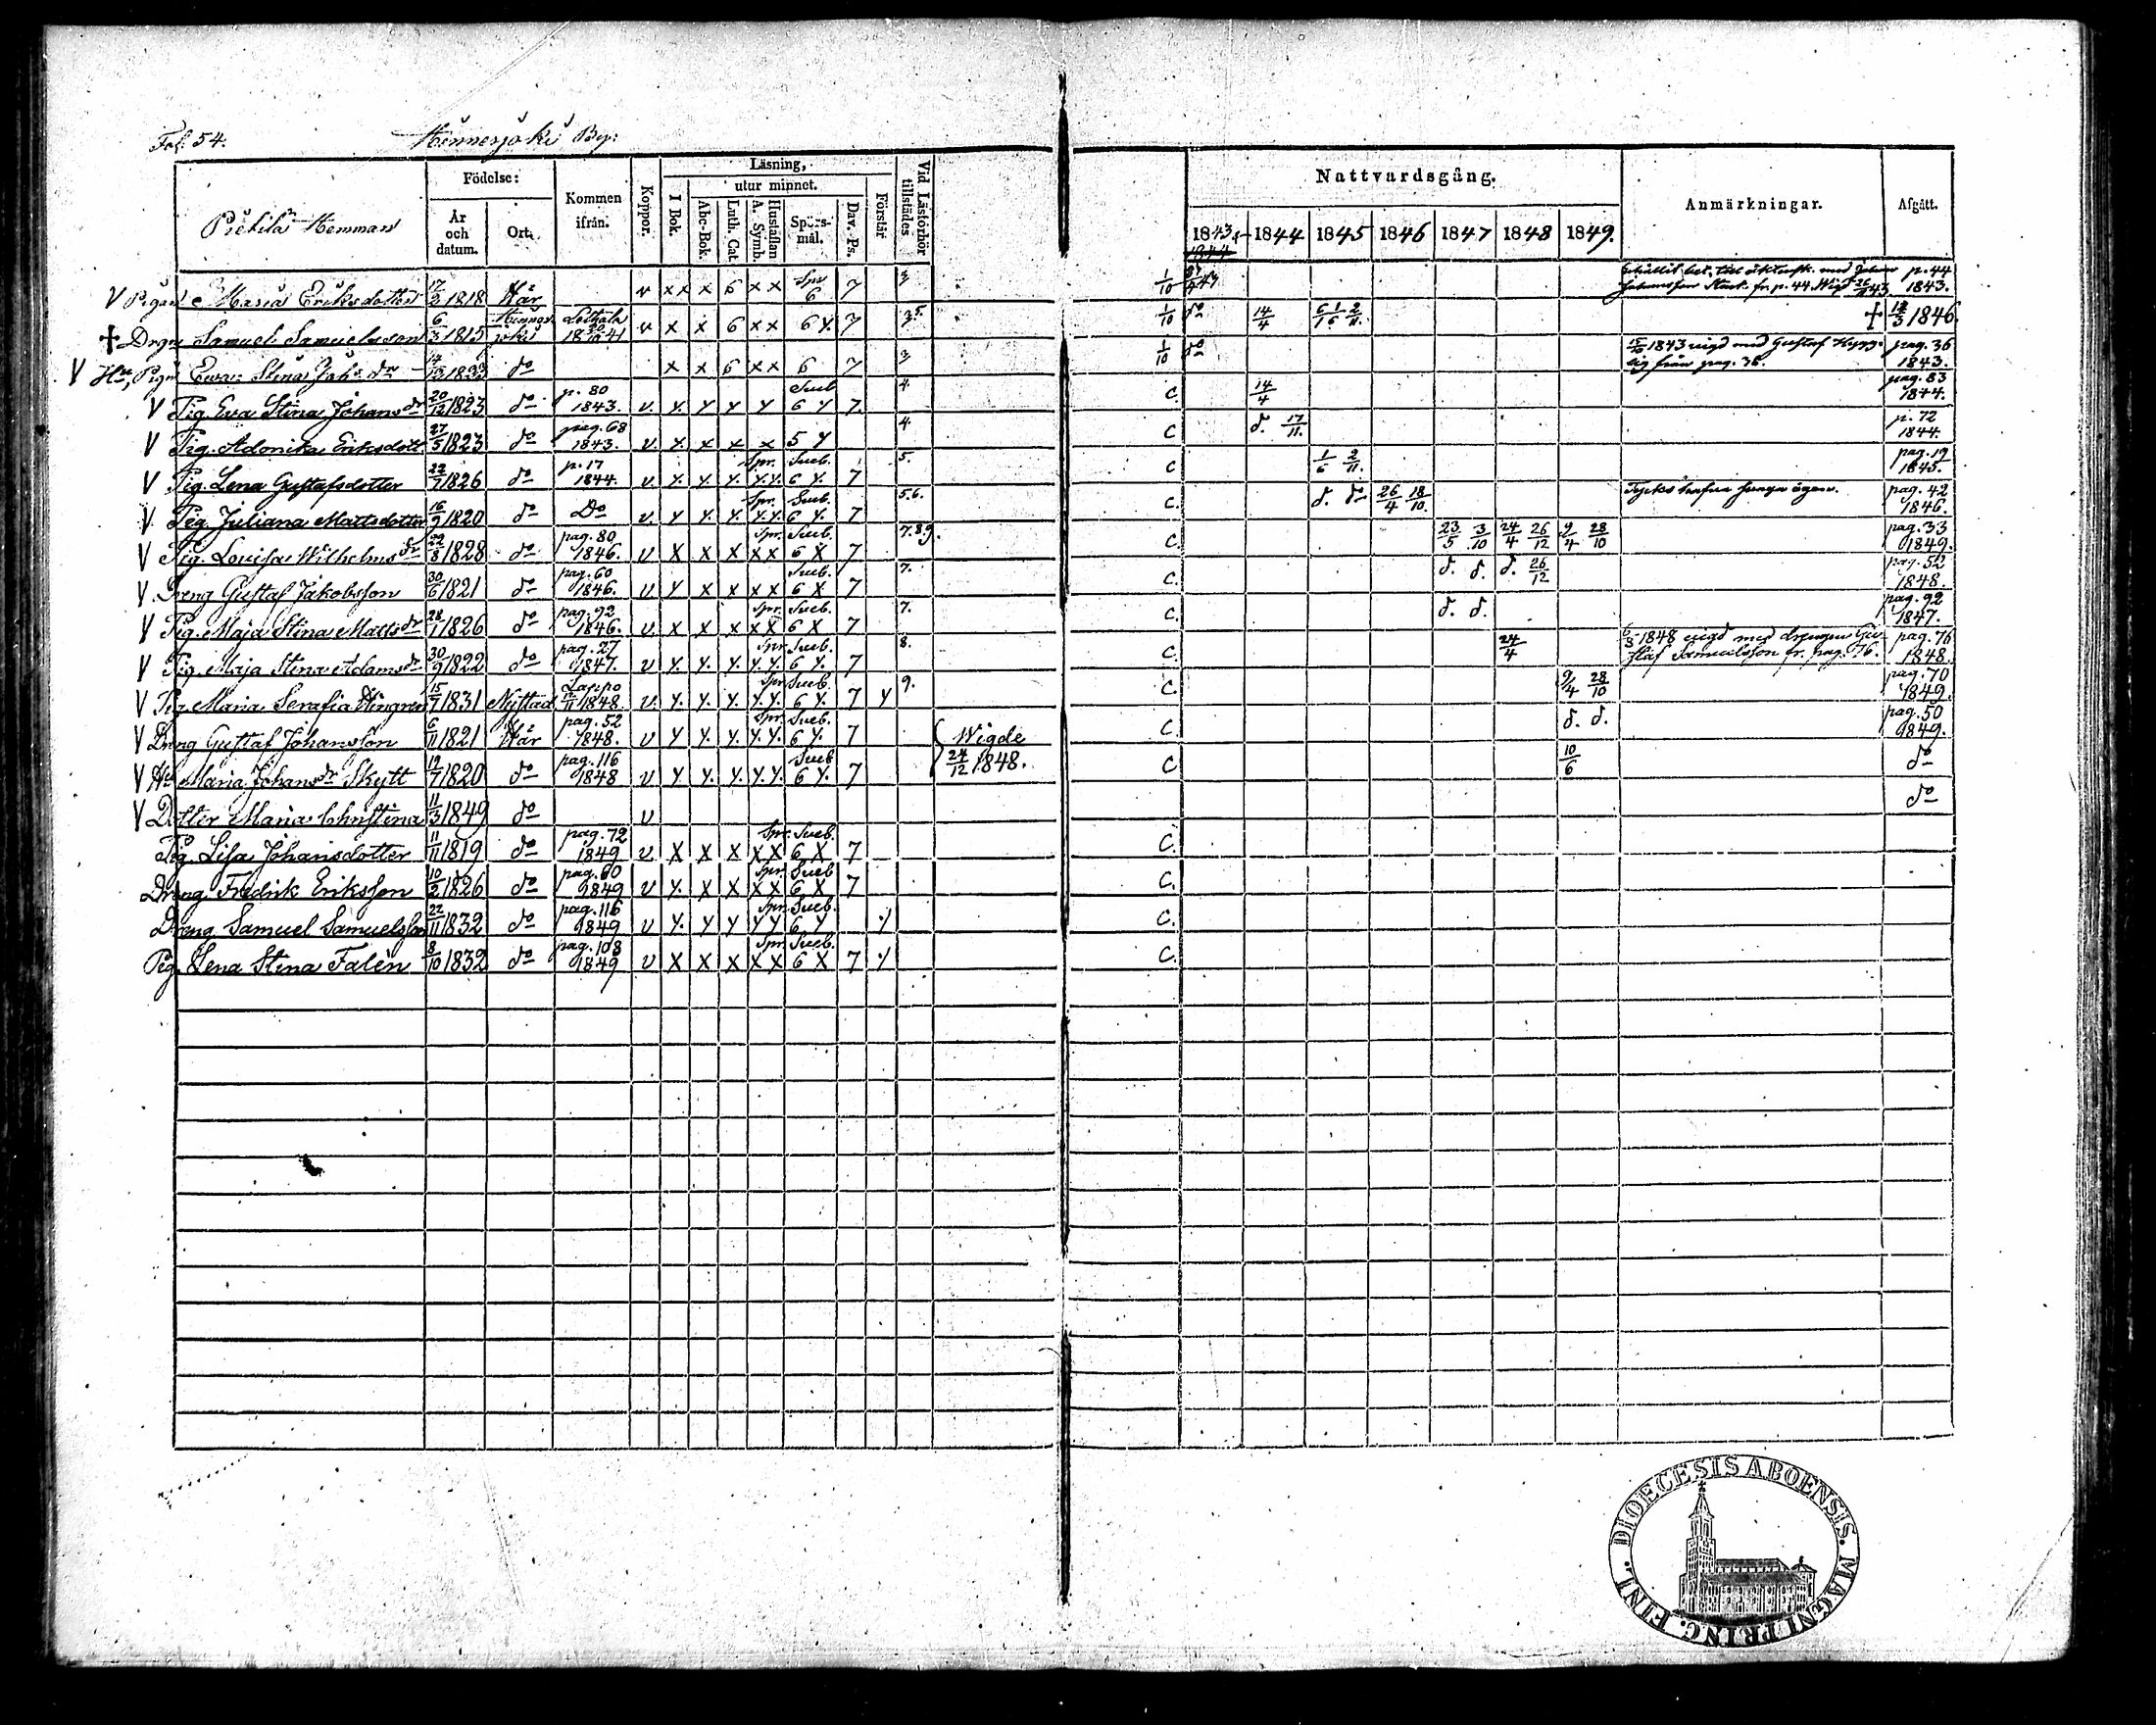 Fol. 54. Hennerjoki By:
Pietilä Hemman
Födelse:
År och datum.
Ort.
Kommen ifrån.
Koppor.
Läsning,
I Bok.
utur minnet.
Abc-Bok.
Luth. Cat
Hustaflan A. Symb.
Spörs-mål.
Dav. Ps.
Förstår
Vid Läsförhör tillstädes
Nattvardsgång.
1843 1844 1845 1846 1847 1848 1849.
Anmärkningar.
Afgått.
V Pigan Maria Eriksdotter 17/2 1818 Här v x x x 6 x x Spr 6 7 3 1/10 p. 44 1843.
+ Drgn Samuel Samuelsson 6/3 1815 v x x 6 x x 6 y. 7 3.5. 1/10 do 14/4 + 1846.
V Pign Ewa Stina Joh:s dr do x x 6 x x 6 7 3 1/10 do 1843 vigd med Gustaf från pag. 36. pag. 36 1843.
V Pig. Eva Stina Johans dr 20/12 1823 do p. 80 1843. v. y. y y y Sueb 6 y 7. 4. C. 14/4 pag. 83 1844.
V Pig. Adonika Eriksdott. 27/5 1823 do pag. 68 1843. v. y. x x x 5 y 4 C d. 17/11. p. 72 1844.
V Pig. Lena Gustafsdotter 22/7 1826 do p. 17 1844. v. y. y. y. y. y. Spr. Sueb. 6 y. 7 5. C 1/6 2/11. pag. 19 1845.
V Pig. Juliana Mattsdotter 16/9 1820 do Do v. y y. y. y. y. Spr. Sueb. 6 y. 7 5.6. C. d. do 26/4 18/10. pag. 42 1846.
V Pig. Lovisa Wilhelms dr 29/8 1828 do pag. 80 1846. v x x x x x Spr. Sueb. 6 x 7 7.8.9. C. 23/5 3/10 24/4 26/12 9/4 28/10 pag. 33 1849.
V Dreng Gustaf Jakobsson 30/6 1821 do pag. 60 1846. v y x x x x Sueb. 6 x 7 7. C. d. d. d. 26/12 pag. 52 1848.
V Pig. Maja Stina Matts dr 28/1 1826 do pag. 92 1846. v. x x x x x Spr. Sueb. 6 x 7 7. C. d. d. pag. 92 1847.
V Pig. Maja Stina Adams dr 30/9 1822 do pag. 27 1847. v y. y. y. y. y. Spr. Sueb. 6 y. 7 8. C. 24/4 6/3 1848 vigd med drengen Gustaf Samuelsson fr. pag. 76. pag. 76 1848.
V Pig. Maria Serafia 15/7 1831 Nystad Lappo 1848. v. y. y. y. y. y. Spr. Sueb. 6 y. 7 y 9. C. 9/4 28/10 pag. 70 1849.
V Dreng Gustaf Johansson 6/11 1821 Här pag. 52 1848. v y y. y. y. y. Spr. Sueb. 6 y. 7 Wigde C. d. d. pag. 50 1849.
V Hu Maria Johans dr Skytt 12/7 1820 do pag. 116 1848 v y. y. y. y. y. Sueb 6 y. 7 24/12 1848. C 10/6 do
V Dotter Maria Christina 11/3 1849 do v do
Pig. Lisa Johansdotter 11/11 1819 do pag. 72 1849 v. x x x x x Spr. Sueb. 6 x 7 C.
Dreng Fredrik Eriksson 10/2 1826 do 1849 v y. x x x x Spr. Sueb 6 x 7 C.
Dreng Samuel Samuelsson 22/11 1832 do pag. 116 1849 v y. y y y y Spr. Sueb. 6 y C.
Pig. Lena Stina Falén 8/10 1832 do pag. 108 1849 v x x x x x Spr. Sueb. 6 x 7 C.
DIOECESIS ABOENSIS. MAGNI PRINC. FINL.